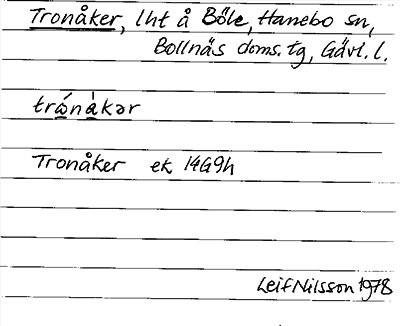 Tronåker, lht å Böle, Hanebo sn,
Bollnäs doms. tg, Gävl. l.
trǻnàkər
Tronåker ek 14G9h
Leif Nilsson 1978